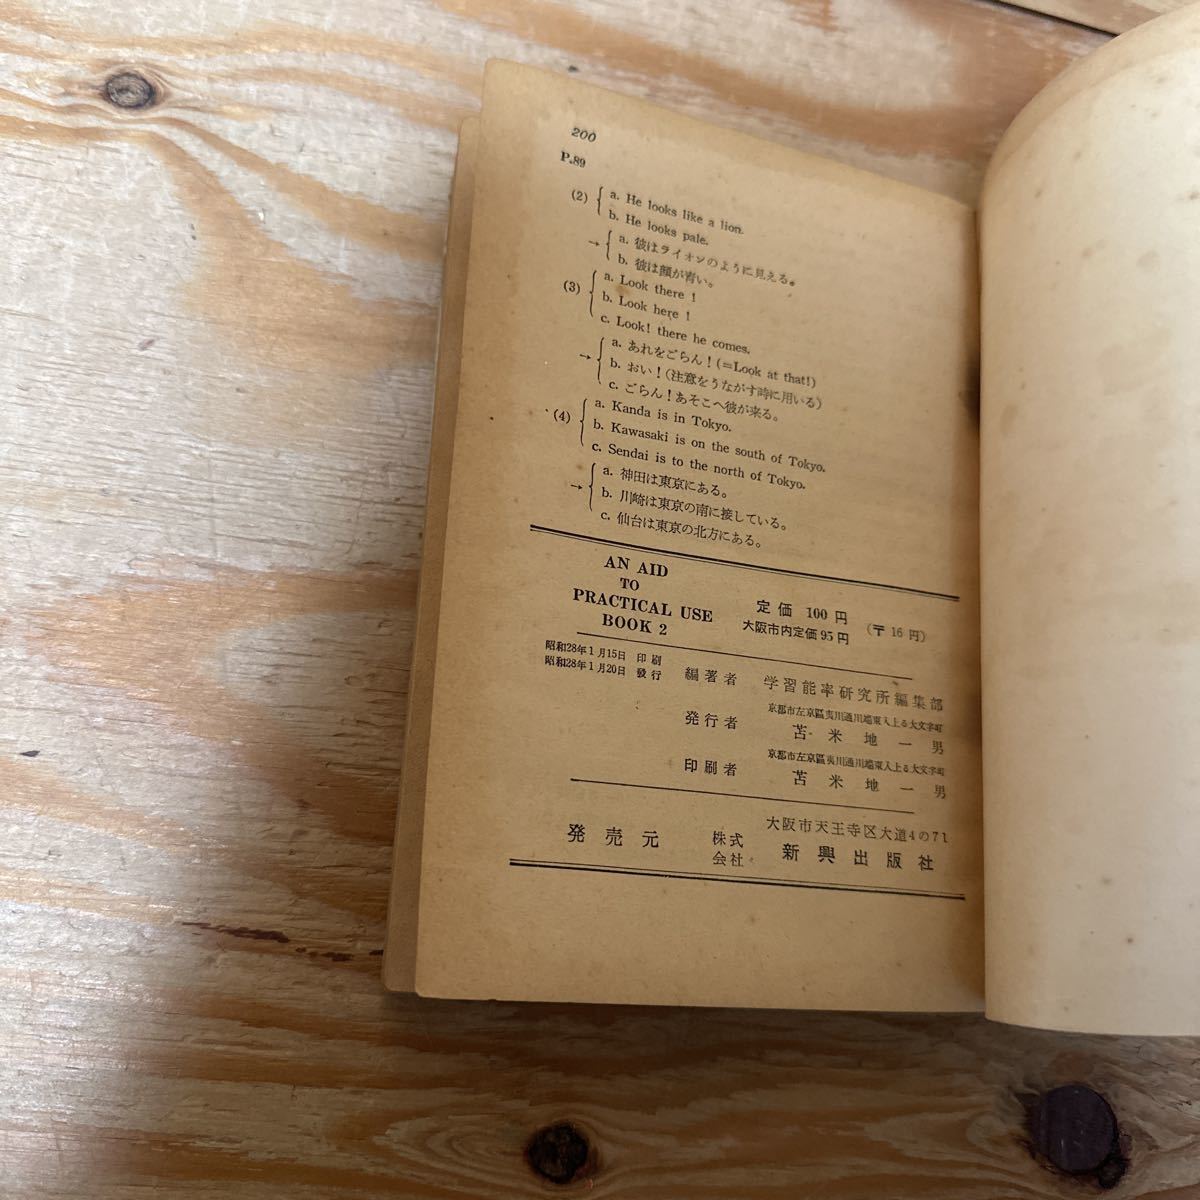 200
P.89
(2) a. He looks like a lion.
b. He looks pale.
→ a. 彼はライオンのように見える。
b. 彼は顔が青い。
(3) a. Look there !
b. Look here !
c. Look! there he comes.
→ a. あれをごらん！(=Look at that!)
b. おい！(注意をうながす時に用いる)
c. ごらん！あそこへ彼が来る。
(4) a. Kanda is in Tokyo.
b. Kawasaki is on the south of Tokyo.
c. Sendai is to the north of Tokyo.
→ a. 神田は東京にある。
b. 川崎は東京の南に接している。
c. 仙台は東京の北方にある。
AN AID
TO
PRACTICAL USE
BOOK 2
定価 100円 (〒16円)
大阪市内定価95円
昭和28年1月15日 印刷
昭和28年1月20日 發行
編著者 学習能率研究所編集部
京都市左京區夷川通川端東入上る大文字町
発行者 苫米地一男
京都市左京區夷川通川端東入上る大文字町
印刷者 苫米地一男
大阪市天王寺区大道4の71
発売元 株式会社 新興出版社